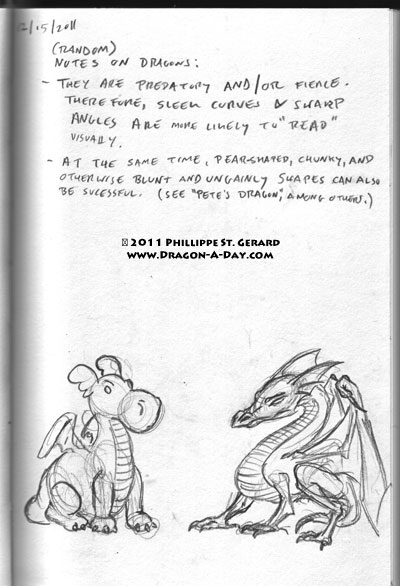 12/15/2011
(RANDOM)
NOTES ON DRAGONS:
- THEY ARE PREDATORY AND/OR FIERCE.
THEREFORE, SLEEK CURVES & SHARP
ANGLES ARE MORE LIKELY TO "READ"
VISUALLY.
- AT THE SAME TIME, PEAR-SHAPED, CHUNKY, AND
OTHERWISE BLUNT AND UNGAINLY SHAPES CAN ALSO
BE SUCESSFUL. (SEE "PETE'S DRAGON", AMONG OTHERS.)
© 2011 PHILLIPPE ST. GERARD
WWW.DRAGON-A-DAY.COM